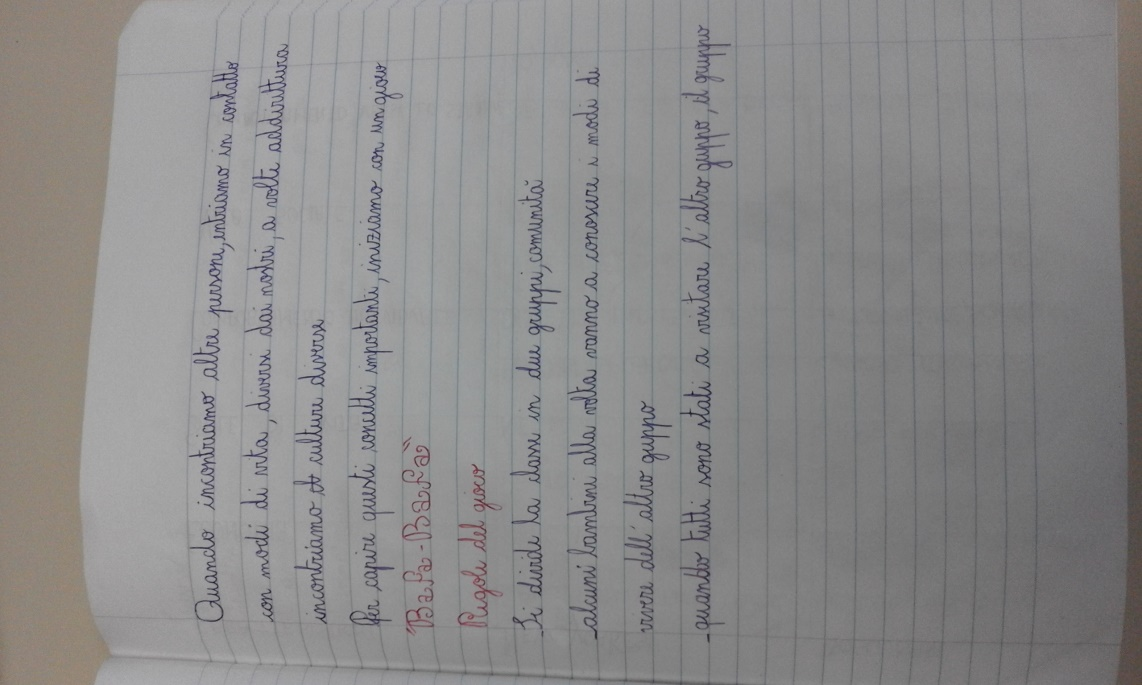 Quando incontriamo altre persone, entriamo in contatto
con modi di vita, diversi dai nostri, a volte addirittura
incontriamo culture diverse
Per capire questi concetti importanti, iniziamo con un gioco
"BaFa-BaFa"
Regole del gioco
-Si divide la classe in due gruppi, comunità
-alcuni bambini alla volta vanno a conoscere i modi di
vivere dell'altro guppo
-quando tutti sono stati a visitare l'altro guppo, il gruppo